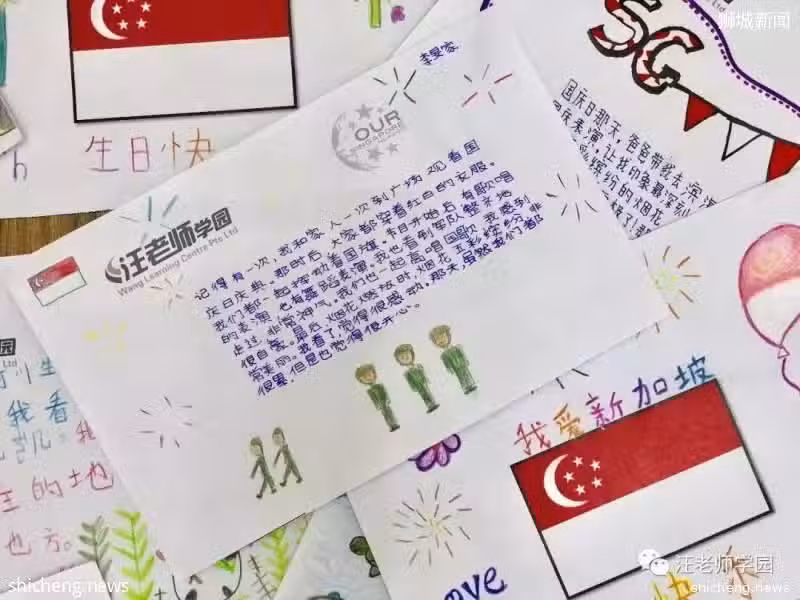 狮城新闻
李旻家
SG
OUR
SINGAPORE
生日快
h
国庆日那天，爸爸带我去滨
庆表演，让我印象最深刻
缤纷的烟花
汪老师学园
Wang Learning Centre Pte Ltd
记得有一次，我和家人一次到广场观看国
庆日庆典。那时后，大家都穿着红白的衣服。
我们都一起挥动着国旗。节目开始后，有歌唱
的表演，也有舞蹈表演。我也看到军队整齐地
走过，非常神气。我们也一起高唱国歌，我感到
很自豪。最后，烟花燃放时，烟花五彩缤纷，非
常美丽。我看了觉得很感动。那天，虽然我们都
很累，但是也觉得很开心。
园
我看
的地
也方。
我爱新加坡
love
汪老师学园
shicheng.news
shicheng.news